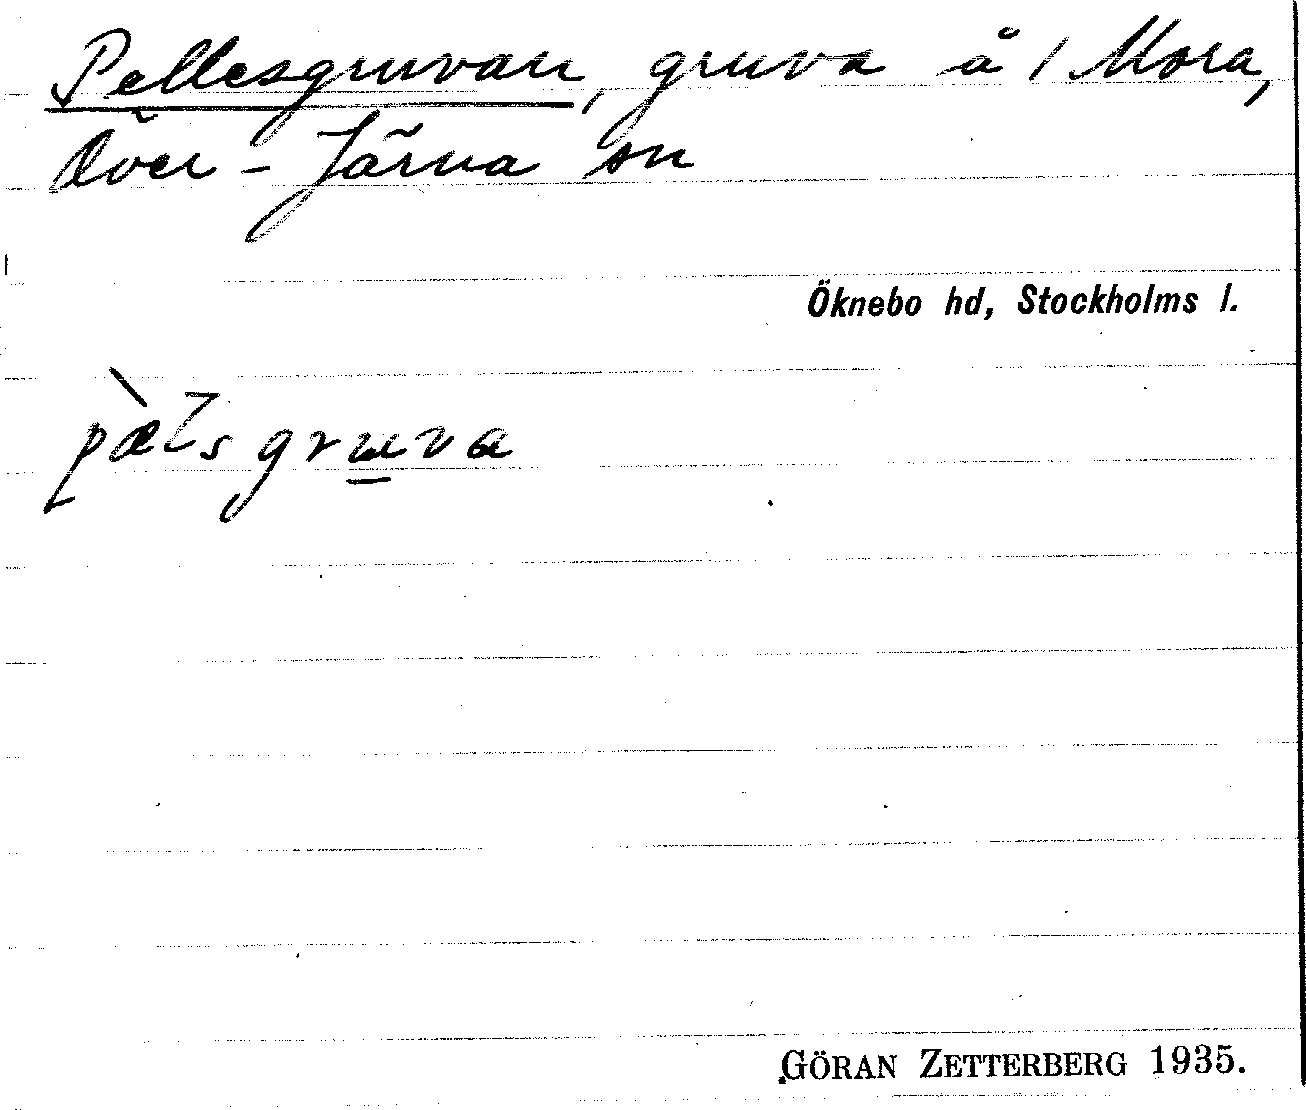 Pellesgruvan, gruva å / Mora,
Över-Järna sn
Öknebo hd, Stockholms l.
pæ̀lsgru̲va
GÖRAN ZETTERBERG 1935.